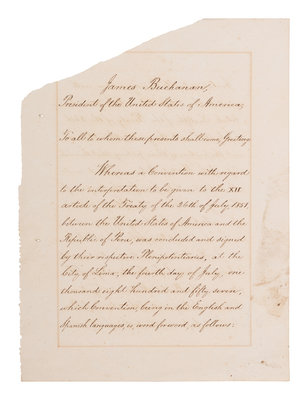 James Buchanan,
President of the United States of America,
To all to whom these presents shall come, Greeting
Whereas a Convention with regard
to the interpretation to be given to the XII
article of the Treaty of the 26th of July 1851
between the United States of America and the
Republic of Peru, was concluded and signed
by their respective Plenipotentiaries, at the
City of Lima, the fourth day of July, one
thousand eight hundred and fifty seven,
which Convention, being in the English and
Spanish languages, is, word for word, as follows: